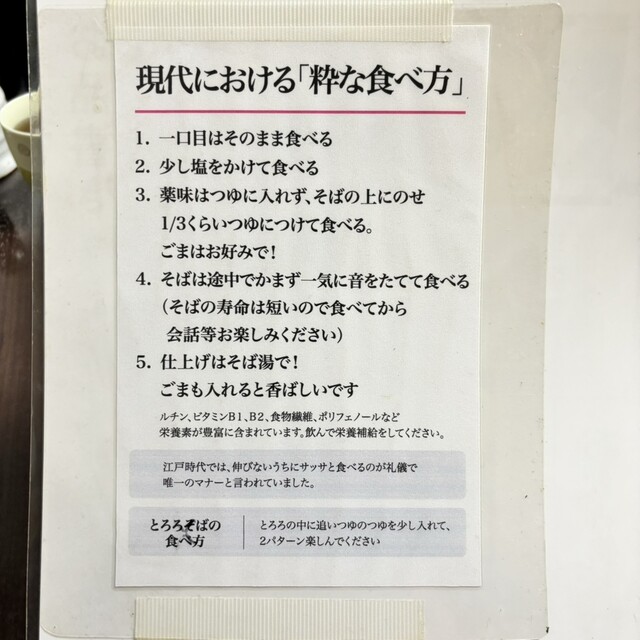 現代における「粋な食べ方」
1. 一口目はそのまま食べる
2. 少し塩をかけて食べる
3. 薬味はつゆに入れず、そばの上にのせ
1/3くらいつゆにつけて食べる。
ごまはお好みで!
4. そばは途中でかまず一気に音をたてて食べる
(そばの寿命は短いので食べてから
会話等お楽しみください)
5. 仕上げはそば湯で!
ごまも入れると香ばしいです
ルチン、ビタミンB1、B2、食物繊維、ポリフェノールなど
栄養素が豊富に含まれています。飲んで栄養補給をしてください。
江戸時代では、伸びないうちにサッサと食べるのが礼儀で
唯一のマナーと言われていました。
とろろそばの
食べ方
とろろの中に追いつゆのつゆを少し入れて、
2パターン楽しんでください